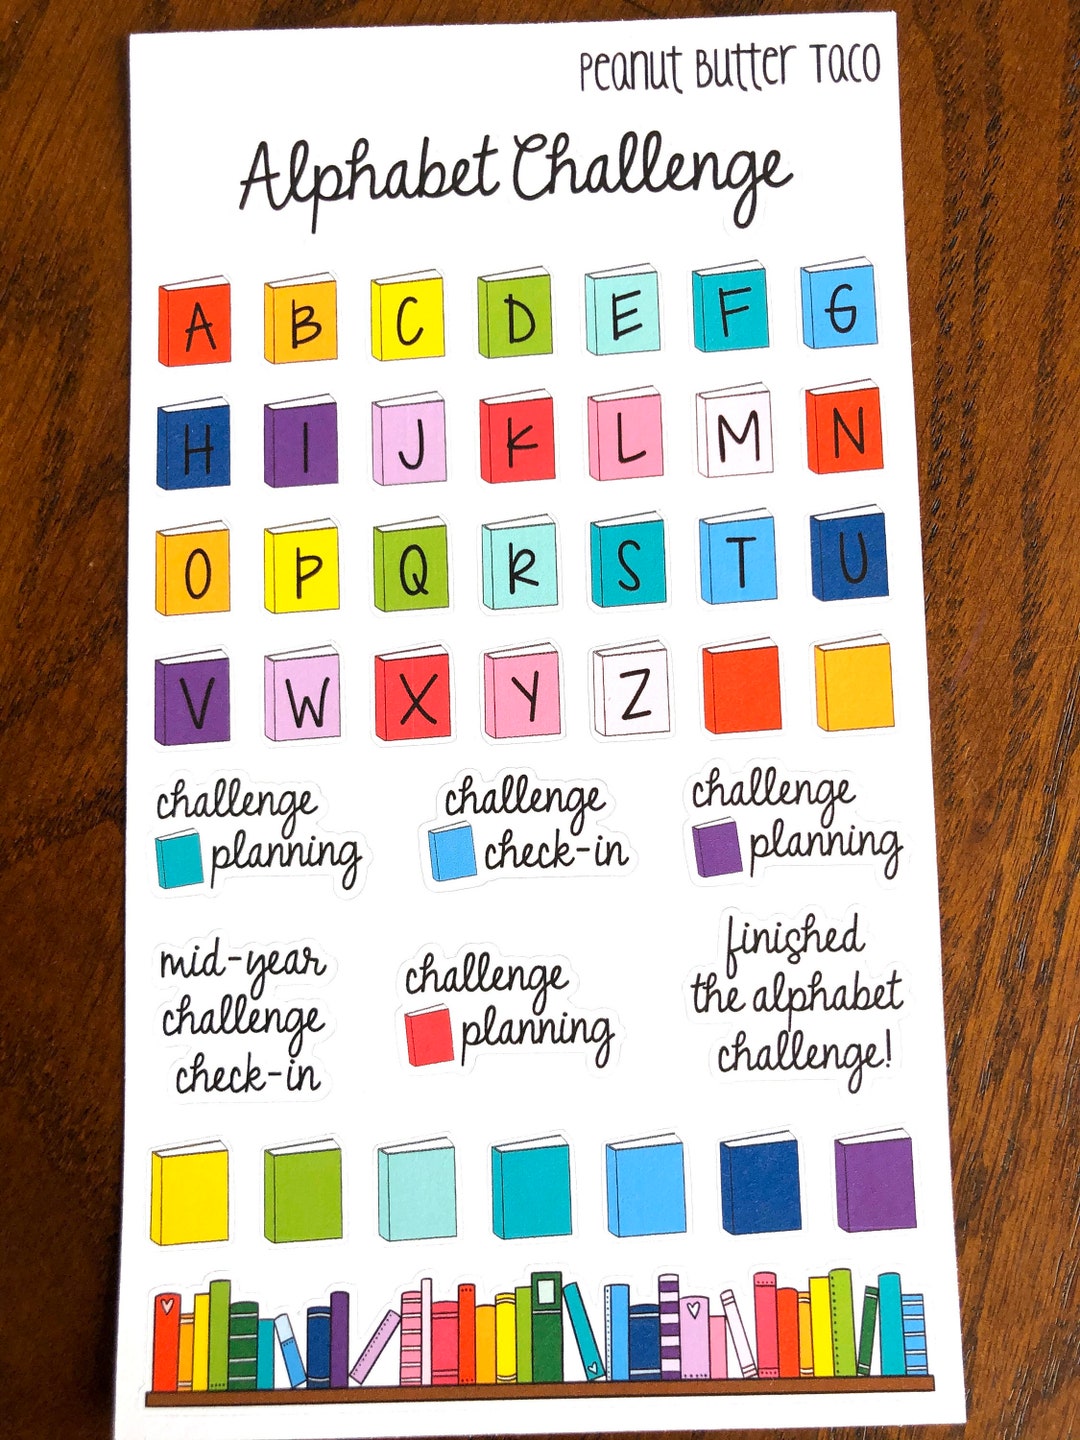 Peanut Butter Taco
Alphabet Challenge
A B C D E F G
H I J K L M N
O P Q R S T U
V W X Y Z
challenge
planning
challenge
check-in
challenge
planning
mid-year
challenge
check-in
challenge
planning
finished
the alphabet
challenge!